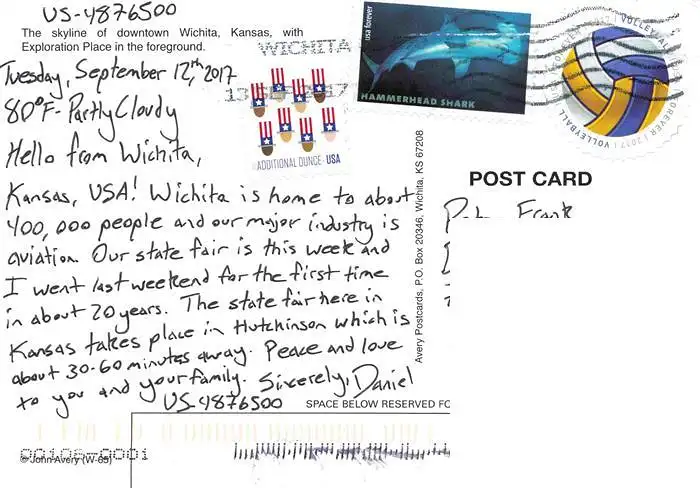 US-4876500
The skyline of downtown Wichita, Kansas, with
Exploration Place in the foreground.
WICHITA
Tuesday, September 12,th 2017
80°F - Partly Cloudy
Hello from Wichita,
Kansas, USA! Wichita is home to about
400,000 people and our major industry is
aviation. Our state fair is this week and
I went last weekend for the first time
in about 20 years. The state fair here in
Kansas takes place in Hutchinson which is
about 30-60 minutes away. Peace and love
to you and your family. Sincerely, Daniel
US-4876500
ADDITIONAL OUNCE · USA
usa forever
HAMMERHEAD SHARK
VOLLEYBALL
FOREVER | 2017 | VOLLEYBALL
POST CARD
Frank
Avery Postcards, P.O. Box 20346, Wichita, KS 67208
SPACE BELOW RESERVED FO
© John Avery (W-65)